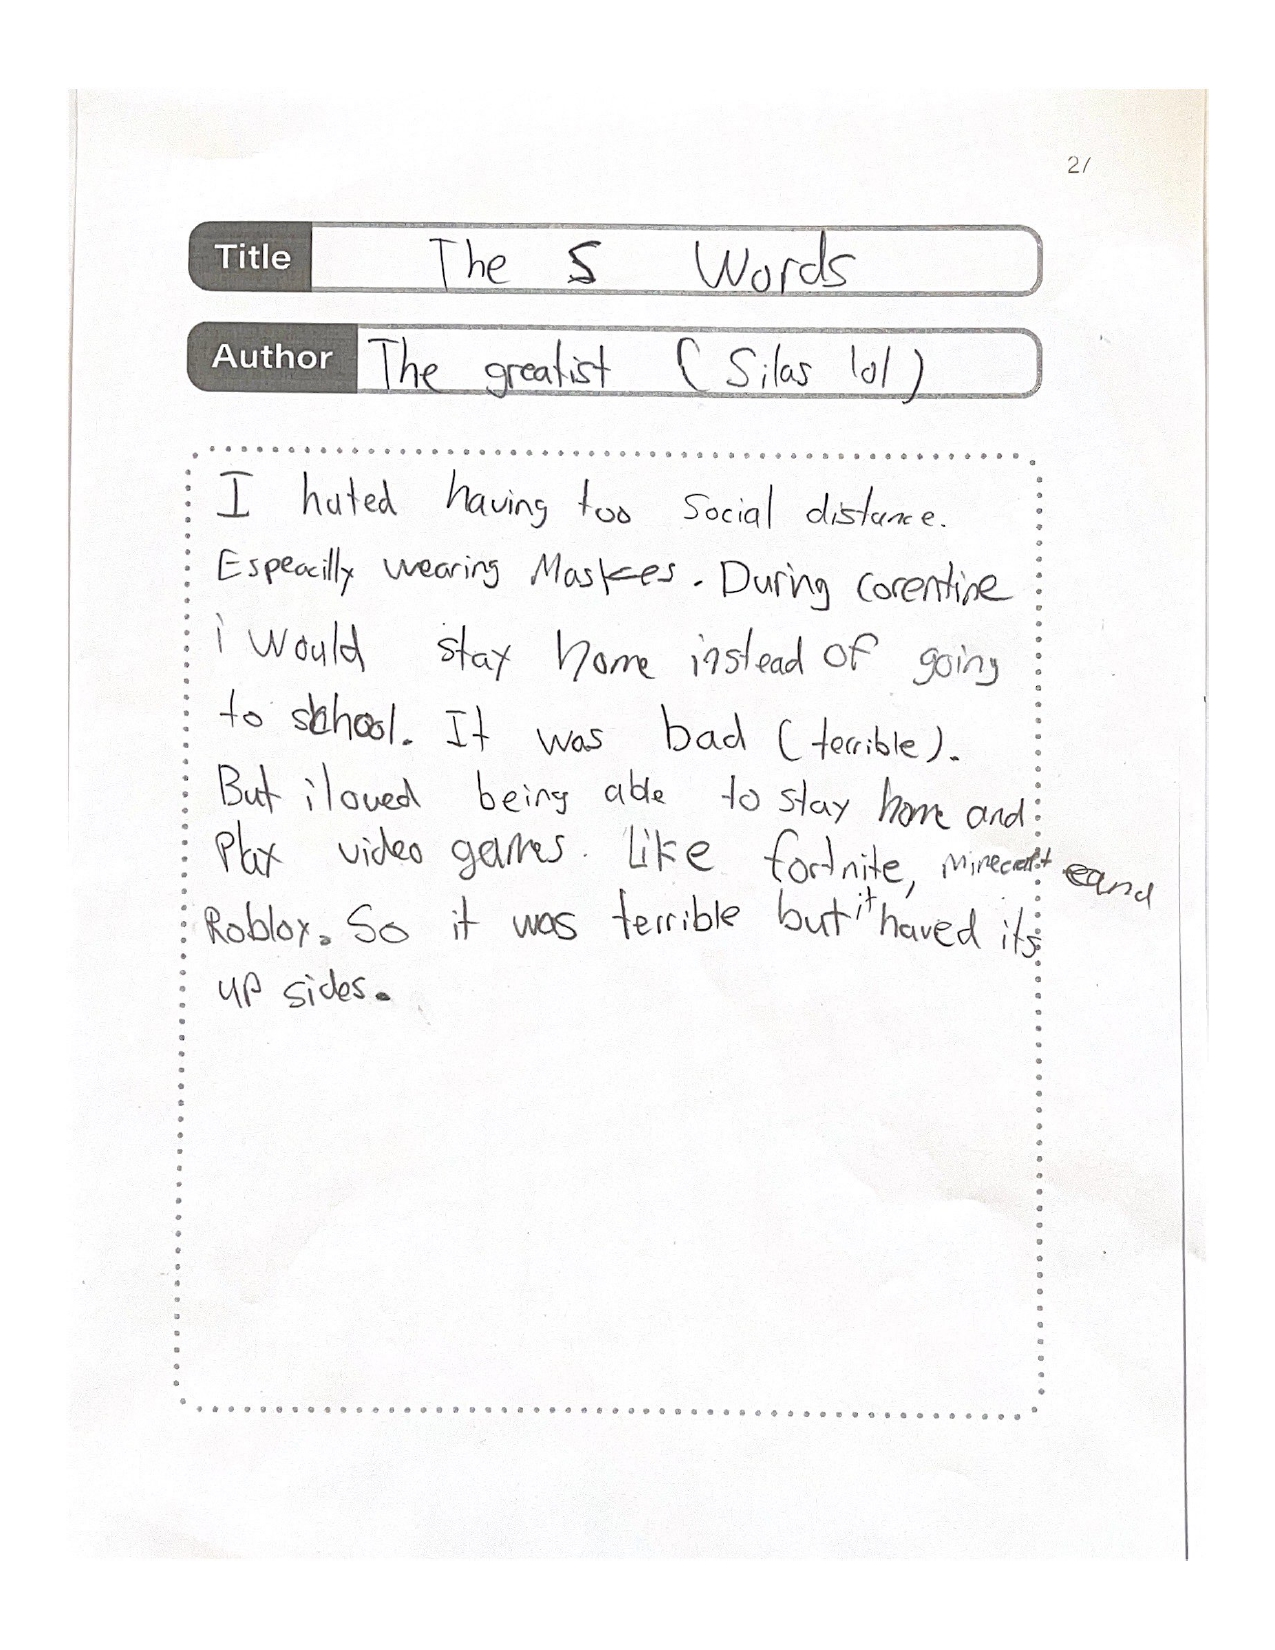 21
Title The 5 Words
Author The greatist (Silas lol)
I hated having too Social distance.
Espeacilly wearing Maskes. During corentine
i would stay home instead of going
to school. It was bad (terrible).
But i loved being able to stay home and
Play video games. Like fortnite, minecraft and
Roblox. So it was terrible but it haved its
up sides.